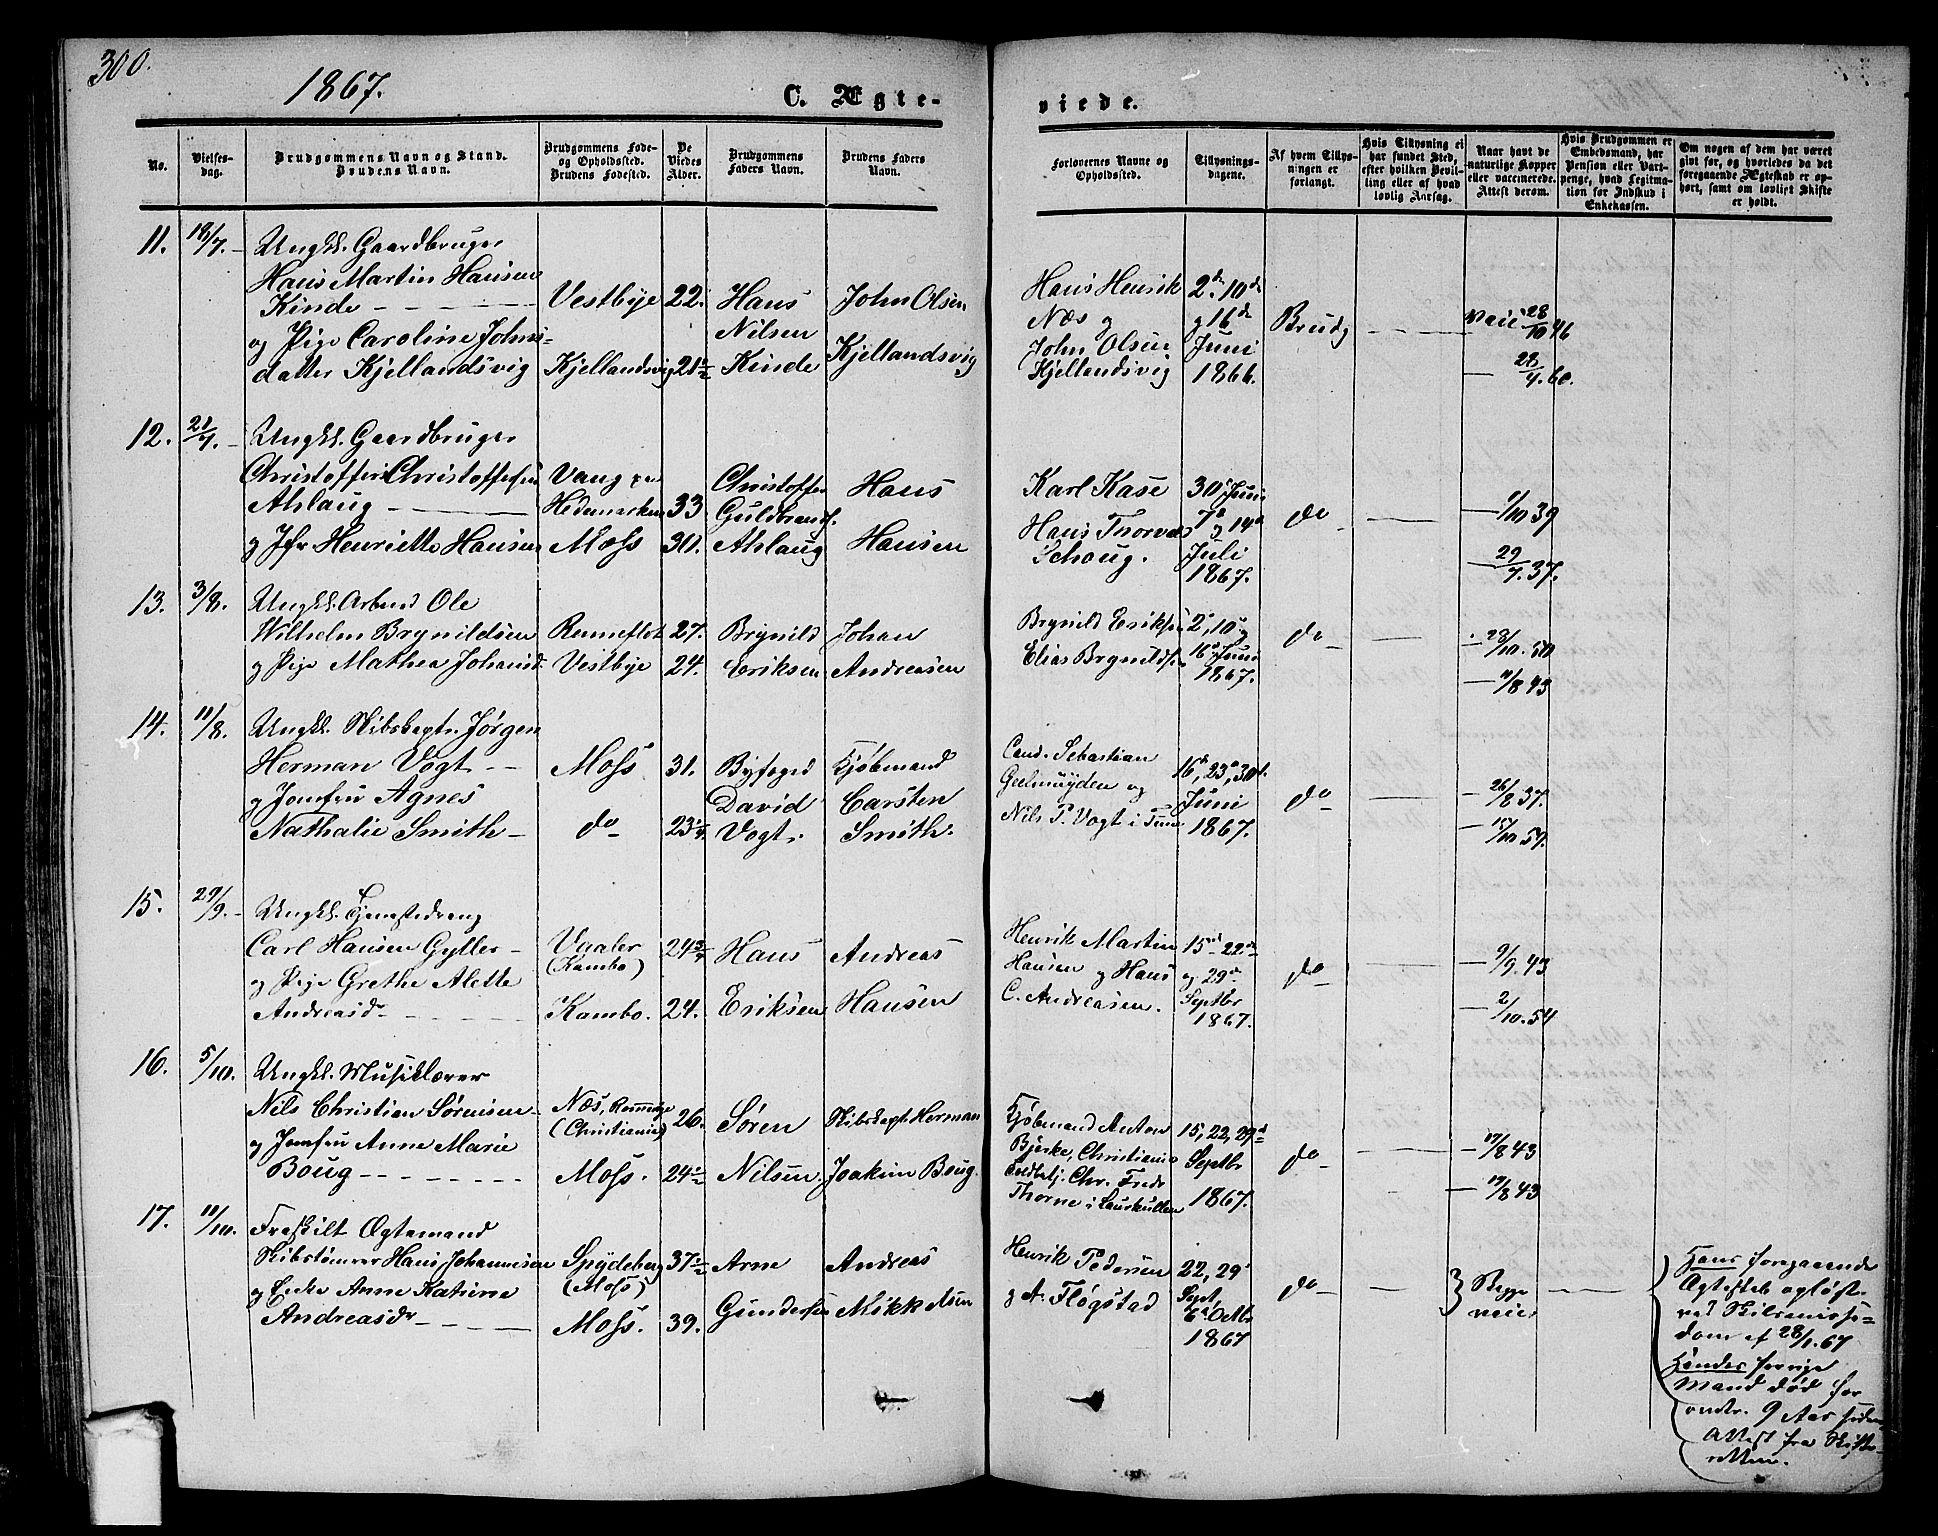 300.
1867.
C. Ægte-
viede.
No.
Vielses-
dag.
Brudgommens Navn og Stand.
Brudens Navn.
Brudgommens Føde-
og Opholdssted.
Brudens Fødested.
De
Viedes
Alder.
Brudgommens
Faders Navn.
Brudens Faders
Navn.
Forlovernes Navne og
Opholdssted.
Tillysnings-
dagene.
Af hvem Tillys-
ningen er
forlangt.
Hvis Tillysning ei
har fundet Sted,
efter hvilken Bevil-
ling eller af hvad
lovlig Aarsag.
Naar havt de
naturlige Kopper
eller vaccinerede.
Attest derom.
Hvis Brudgommen er
Embedsmand, har
Pension eller Vart-
penge, hvad Legitima-
tion for Indskud i
Enkekassen.
Om nogen af dem har været
gift før, og hvorledes da det
foregaaende Ægteskab er op-
hørt, samt om lovligt Skifte
er holdt.
11. 18/7. Ungkl. Gaardbruger
Hans Martin Hansen
Kinde Vestbye 22. Hans John Olsen
og Pige Caroline Johns- Nilsen
datter Kjellandsvig Kjellandsvig 21 1/2 Kinde Kjellandsvig
Hans Henrik 2d, 10de
Næs og og 16de Brudg
John Olsen Juni
Kjellandsvig 1866.
28/10 46
28/7. 60.
12. 21/7. Ungkl. Gaardbruger
Christoffer Christoffersen Vang Christoffer Hans
Ahlaug Hedemarken 33 Guldbrands.
og Jfr Henriette Hansen Moss 30. Ahlaug Hansen
Karl Kase 30 Juni
Hans Thorvas 7d og 14d do
Schoug. Juli
1867.
1/10 39
29/7. 37.
13. 3/8. Ungkl. Arbmd Ole
Wilhelm Brynildsen 27. Brynild Johan
og Pige Mathea Johansd. Vestbye 24. Eriksen Andreasen
Brynild Eriksen 2d, 10d og
Elias Brynilds. 16d Juni do
1867.
28/10. 50
11/8 43
14. 11/8. Ungkl. Skibskapt. Jørgen
Herman Vogt Moss 31. Byfoged Kjøbmand
og Jomfru Agnes David Carsten
Nathalie Smith do 23 1/4 Vogt. Smith.
Cand. Sebastian
Geelmuyden og 16d, 23d, 30d.
Nils P. Vogt i Tune Juni do
1867.
26/8 37.
15/10 57.
15. 29/9. Ungkl. Tjenestedreng
Carl Hansen Gyller Vaaler 24 3/4 Hans Andreas
(Kambo)
og Pige Grethe Alette
Andreasd Kambo. 24. Eriksen Hansen
Henrik Martin 15d 22d
Hansen og Hans og 29d do
C. Andreasen. Septbr
1867.
9/9. 43
2/10. 54
16. 5/10. Ungkl. Musiklærer
Nils Christian Sørensen Næs, 26. Søren Skibskapt. Herman
og Jomfru Anne Marie (Christiania)
Boug Moss. 24 1/2 Nilsen Joakim Boug.
Kjøbmand Anton 15, 22, 29d
Bjerke, Christiania Septbr do
Chr. Fredr
Thorne i 1867.
17/8 43
17/8 43
17. 11/10. Fraskilt Ægtemand
Skibstømrer Hans Johannesen Spydeberg 37 1/2 Arne Andreas
og Enke Anne Katrine (Moss)
Andreasdr Moss. 39. Gundersen Mikkelsen
Henrik Pedersen 22, 29d
og A. Fløgstad Sept, do
6d Octbr
1867
Begge
vacc.
Hans foregaaende
Ægteskab opløst
ved Skilsmisse-
dom af 28/1. 67
Hendes forrige
Mand død for
omtr. 9 Aar siden
Attest fra Skifte-
retten.